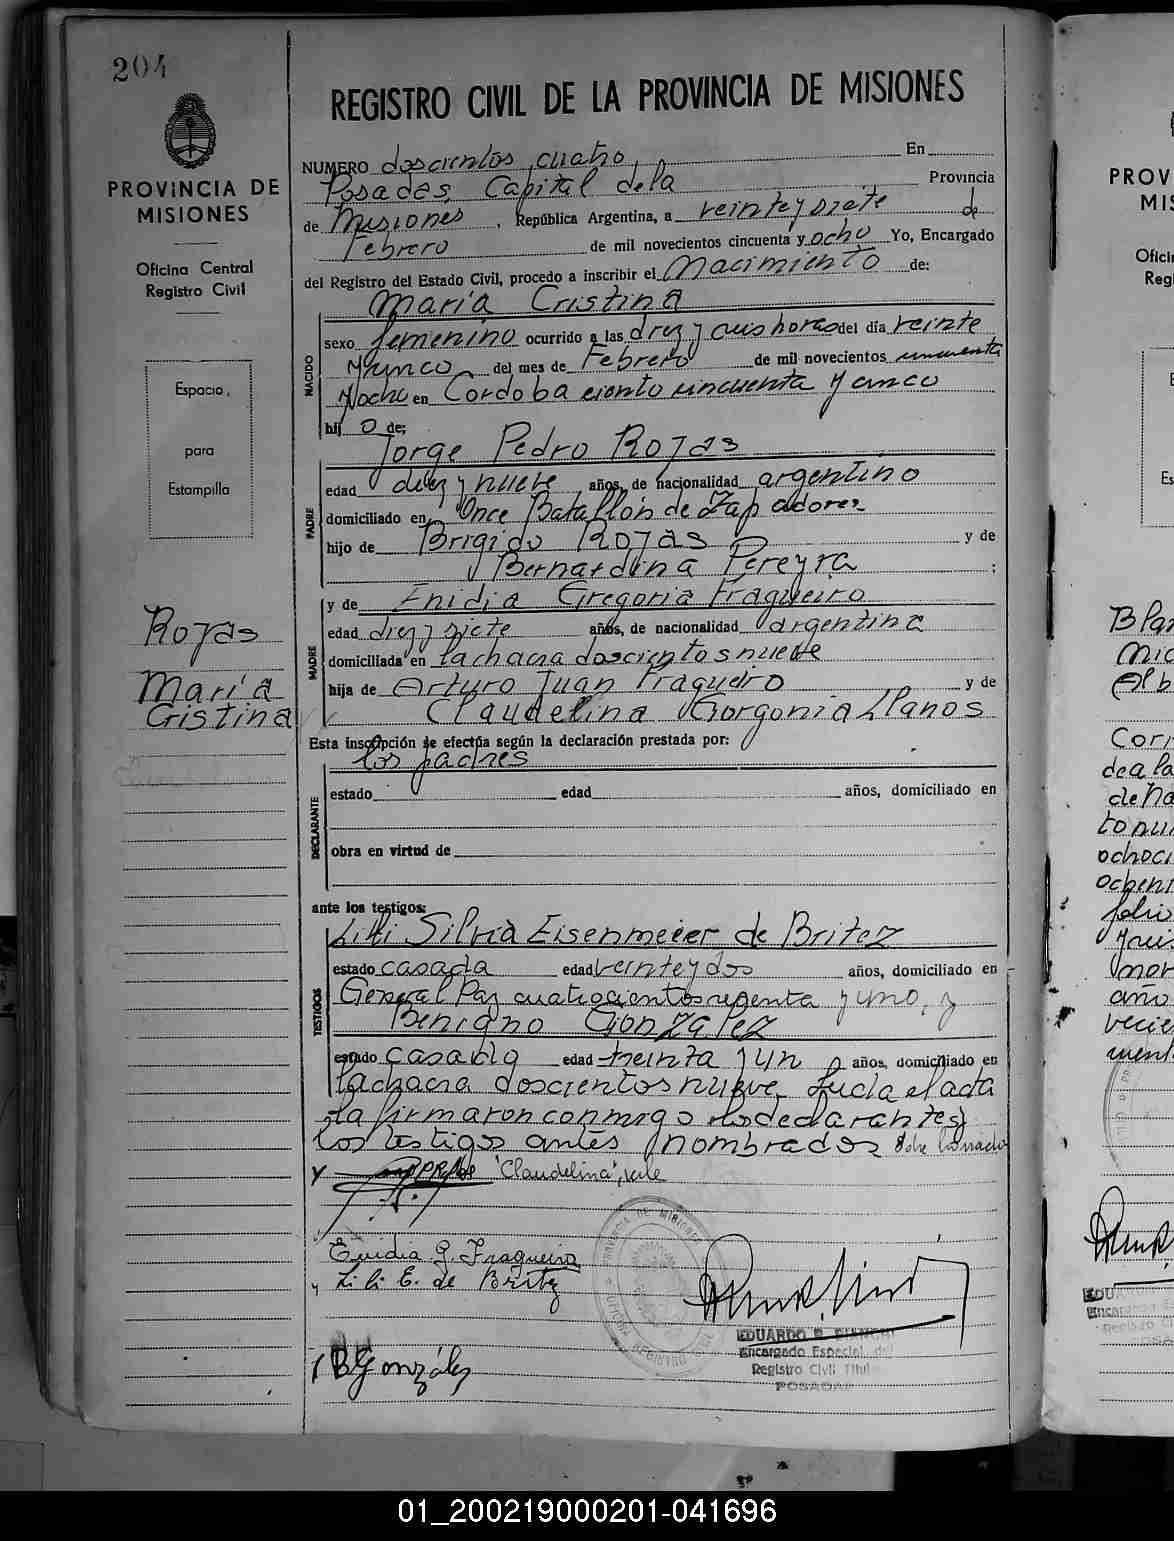 204
PROVINCIA DE
MISIONES
Oficina Central
Registro Civil
Espacio
para
Estampilla
Rojas
María
Cristina
REGISTRO CIVIL DE LA PROVINCIA DE MISIONES
NUMERO doscientos cuatro, En
Posadas, Capital dela Provincia
de Misiones, República Argentina, a veinteysiete de
Febrero de mil novecientos cincuenta y ocho Yo, Encargado
del Registro del Estado Civil, procedo a inscribir el Nacimiento de:
María Cristina
NACIDO
sexo femenino ocurrido a las diez y seis horas del día veinte
ycinco del mes de Febrero de mil novecientos cincuenta
yocho en Cordoba ciento cincuenta y cinco
hij a de:
Jorge Pedro Rojas
PADRE
edad diez y nueve años, de nacionalidad argentino
domiciliado en Once Batallón de Zapadores
hijo de Brigido Rojas y de
Bernardina Pereyra ;
y de Enidia Gregoria Fragueiro
MADRE
edad diez y siete años, de nacionalidad argentina
domiciliada en lachacra doscientosnueve
hija de Arturo Juan Fragueiro y de
Claudelina Gorgonia Llanos
Esta inscripción se efectúa según la declaración prestada por:
los padres
DECLARANTE
estado edad años, domiciliado en
obra en virtud de
ante los testigos:
Lilli Silvia Eisenmeier de Britez
TESTIGOS
estado casada edad veinteydos años, domiciliado en
General Paz cuatrocientos y uno, y
Benigno Gonzalez
estado casado edad treinta y un años, domiciliado en
lachacra doscientosnueve. Leida el acta
la firmaron conmigo los declarantes y
los testigos antes nombrados
y "Claudelina", vale
Enidia G. Fragueiro
Lili E. de Britez
B Gonzáles
PROVINCIA DE MISIONES
EDUARDO R. BIANCHI
Encargado Especial del
Registro Civil Titu
POSADAS
PROV
MIS
Oficin
Reg
01_200219000201-041696